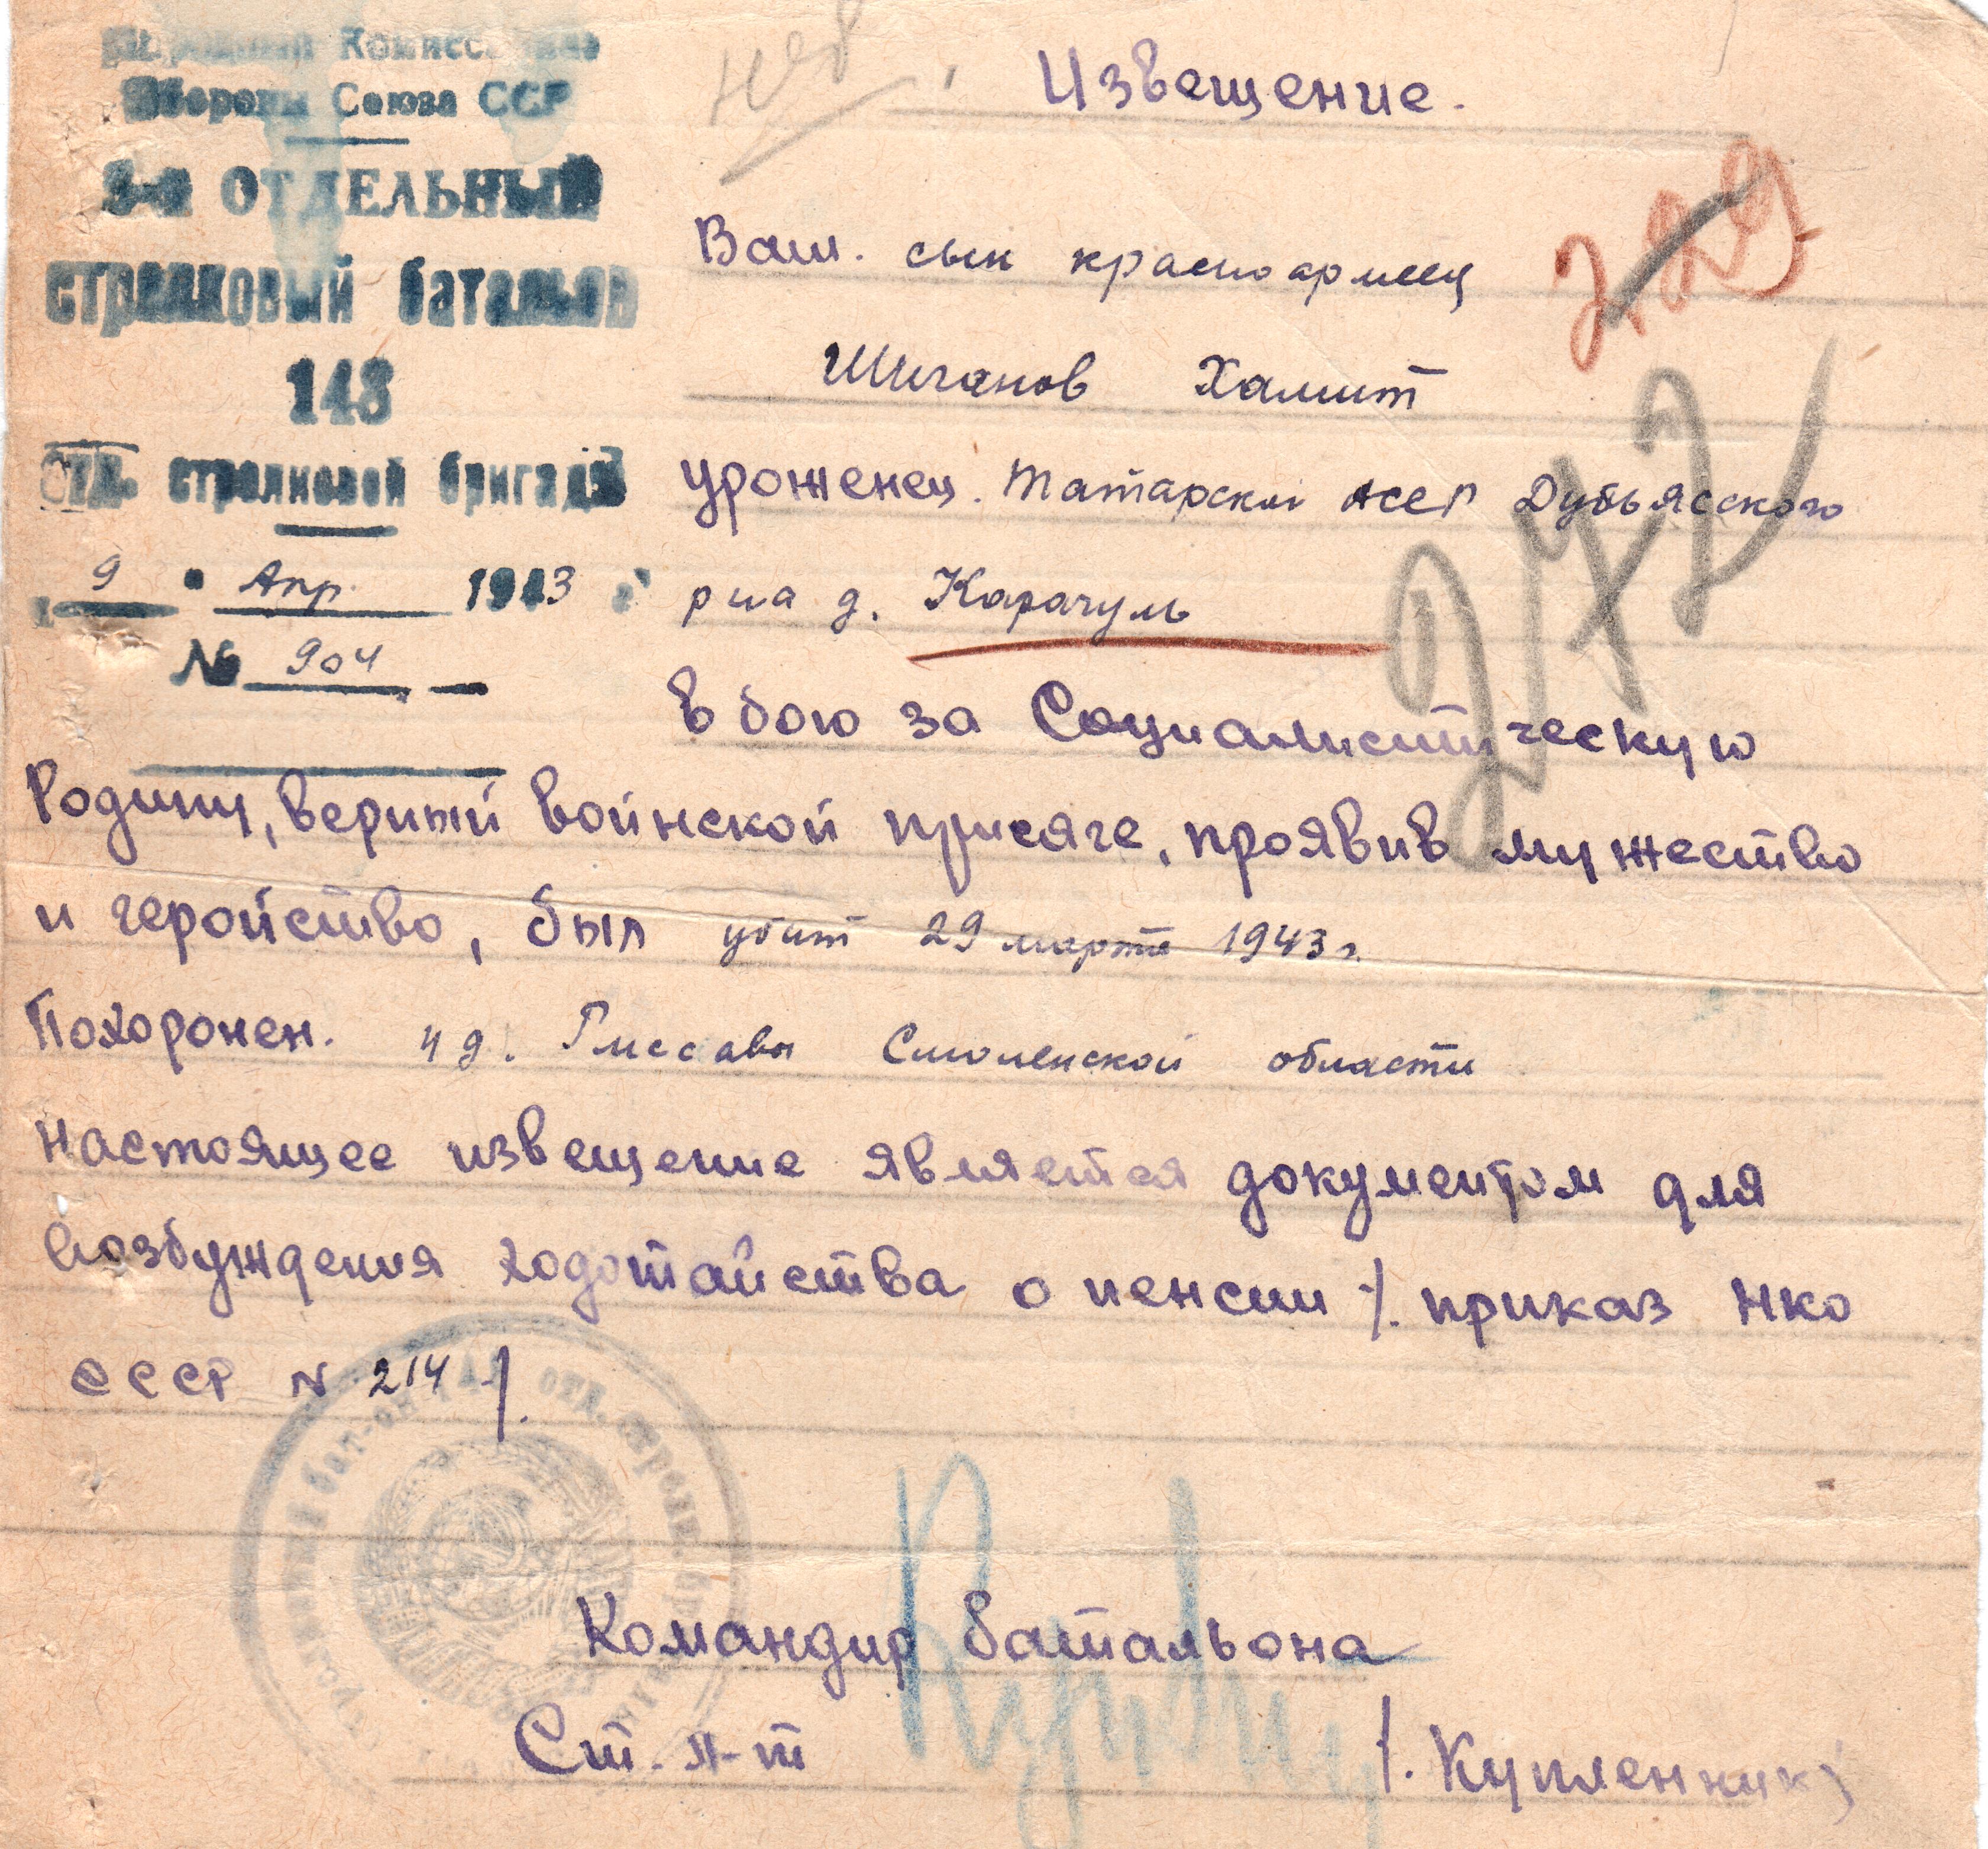 Народный Комиссариат
Обороны Союза ССР
3-й ОТДЕЛЬНЫЙ
стрелковый батальон
148
отд. стрелковой бригады
9 " Апр. 1943 г
№ 904
Извещение.
229
Ваш. сын красноармеец
Шиганов Хамит
уроженец. Татарской АССР Дубьясского
р на д. Карачуль
242
в бою за Социалистическую
Родину, верный воинской присяге, проявив мужество
и геройство, был убит 29 марта 1943 г.
Похоронен. у д. Смоленской области
Настоящее извещение является документом для
возбуждения ходотайства о пенсии /. приказ НКО
СССР N 214 /.
Командир батальона
Ст. л-т /. Купленник /